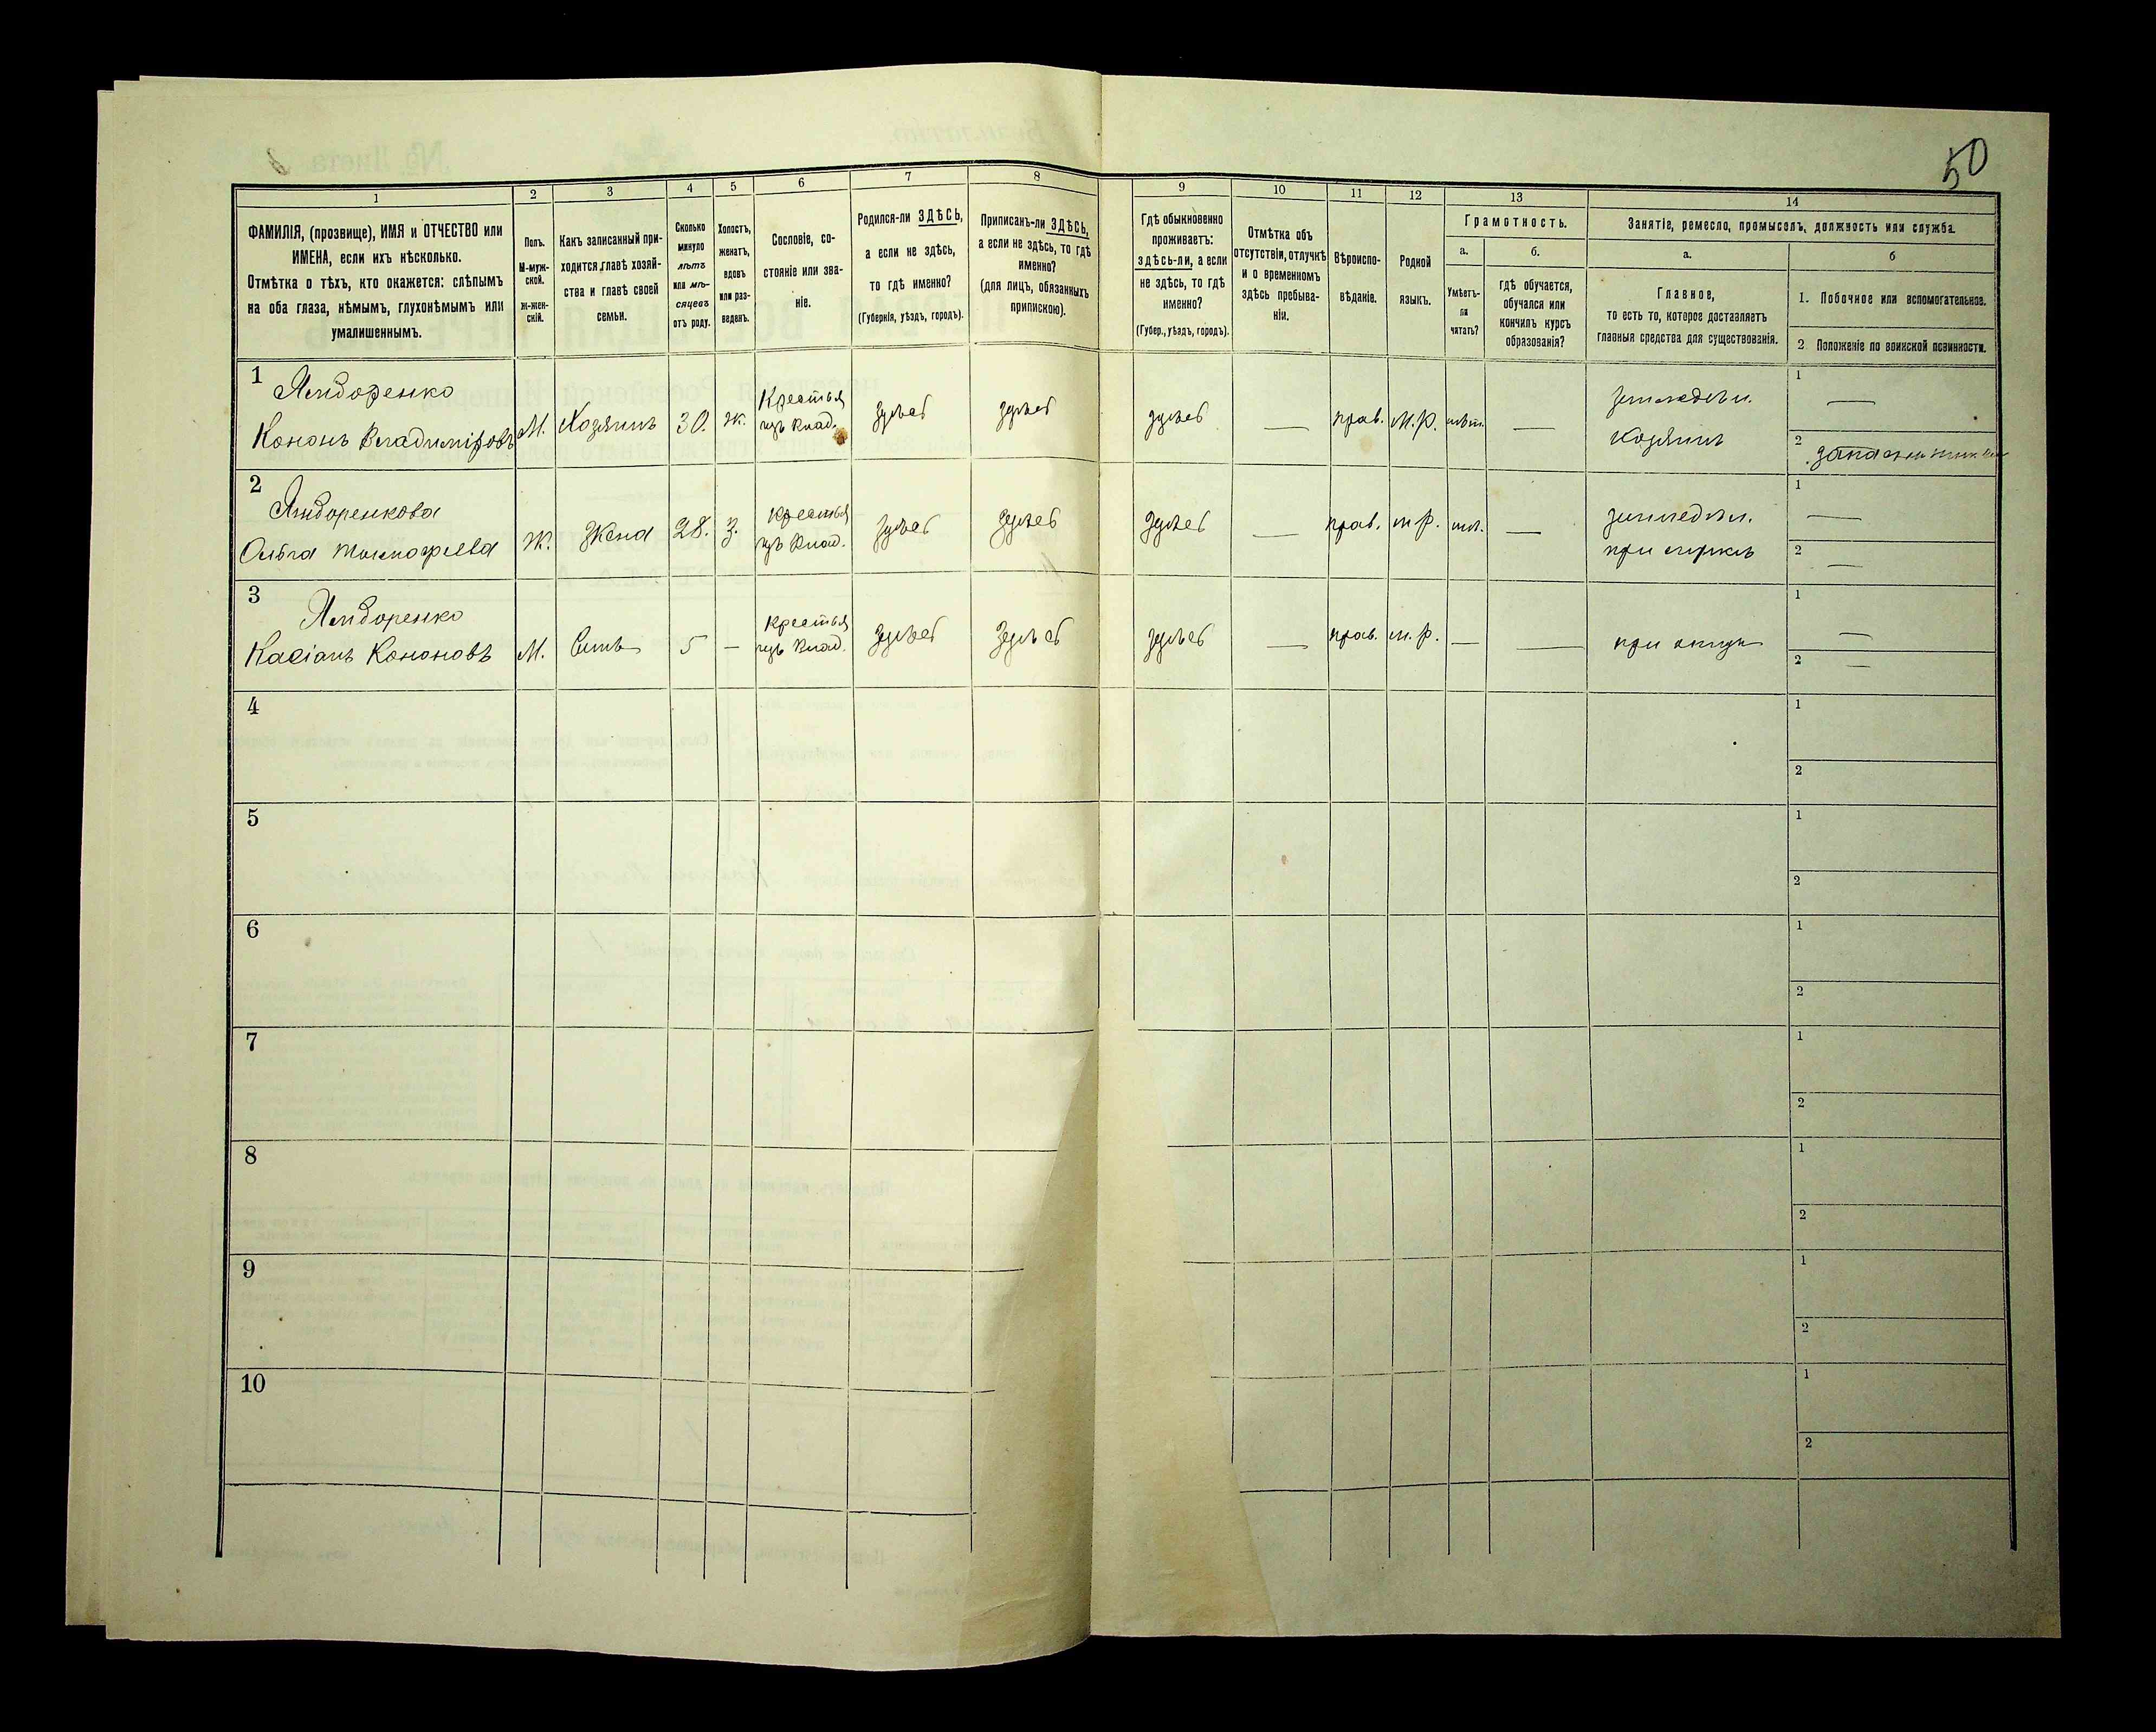 50
1
2
3
4
5
6
7
8
9
10
11
12
13
14
ФАМИЛІЯ, (прозвище), ИМЯ и ОТЧЕСТВО или
ИМЕНА, если ихъ нѣсколько.
Отмѣтка о тѣхъ, кто окажется: слѣпымъ
на оба глаза, нѣмымъ, глухонѣмымъ или
умалишеннымъ.
Полъ.
М-муж-
ской.
Ж-жен-
скій.
Какъ записанный при-
ходится главѣ хозяй-
ства и главѣ своей
семьи.
Сколько
минуло
лѣтъ
или мѣ-
сяцевъ
отъ роду.
Холостъ,
женатъ,
вдовъ
или раз-
веденъ.
Сословіе, со-
стояніе или зва-
ніе.
Родился-ли ЗДѢСЬ,
а если не здѣсь,
то гдѣ именно?
(Губернія, уѣздъ, городъ).
Приписанъ-ли ЗДѢСЬ,
а если не здѣсь, то гдѣ
именно?
(для лицъ, обязанныхъ
припискою).
Гдѣ обыкновенно
проживаетъ:
здѣсь-ли, а если
не здѣсь, то гдѣ
именно?
(Губер., уѣздъ, городъ).
Отмѣтка объ
отсутствіи, отлучкѣ
и о временномъ
здѣсь пребыва-
ніи.
Вѣроиспо-
вѣданіе.
Родной
языкъ.
Грамотность.
а.
б.
Умѣетъ-
ли
читать?
гдѣ обучается,
обучался или
кончилъ курсъ
образованія?
Занятіе, ремесло, промыселъ, должность или служба.
а.
б
Главное,
то есть то, которое доставляетъ
главныя средства для существованія.
1. Побочное или вспомогательное.
2 Положеніе по воинской повинности.
1
Кононъ Владиміровъ
М. Хозяинъ 30. ж. Крестья здѣсь здѣсь здѣсь — прав. М.Р. —
Хозяинъ
1 —
2
2
Ольга
Ж. Жена 28. З. Крестья здѣсь здѣсь здѣсь — прав. м.р. —
при мужѣ
1 —
2 —
3
Касіанъ Кононовъ
М. Сынъ 5 — Крестья здѣсь здѣсь здѣсь — прав. м.р. — — при отцѣ
1 —
2 —
4
1
2
5
1
2
6
1
2
7
1
2
8
1
2
9
1
2
10
1
2